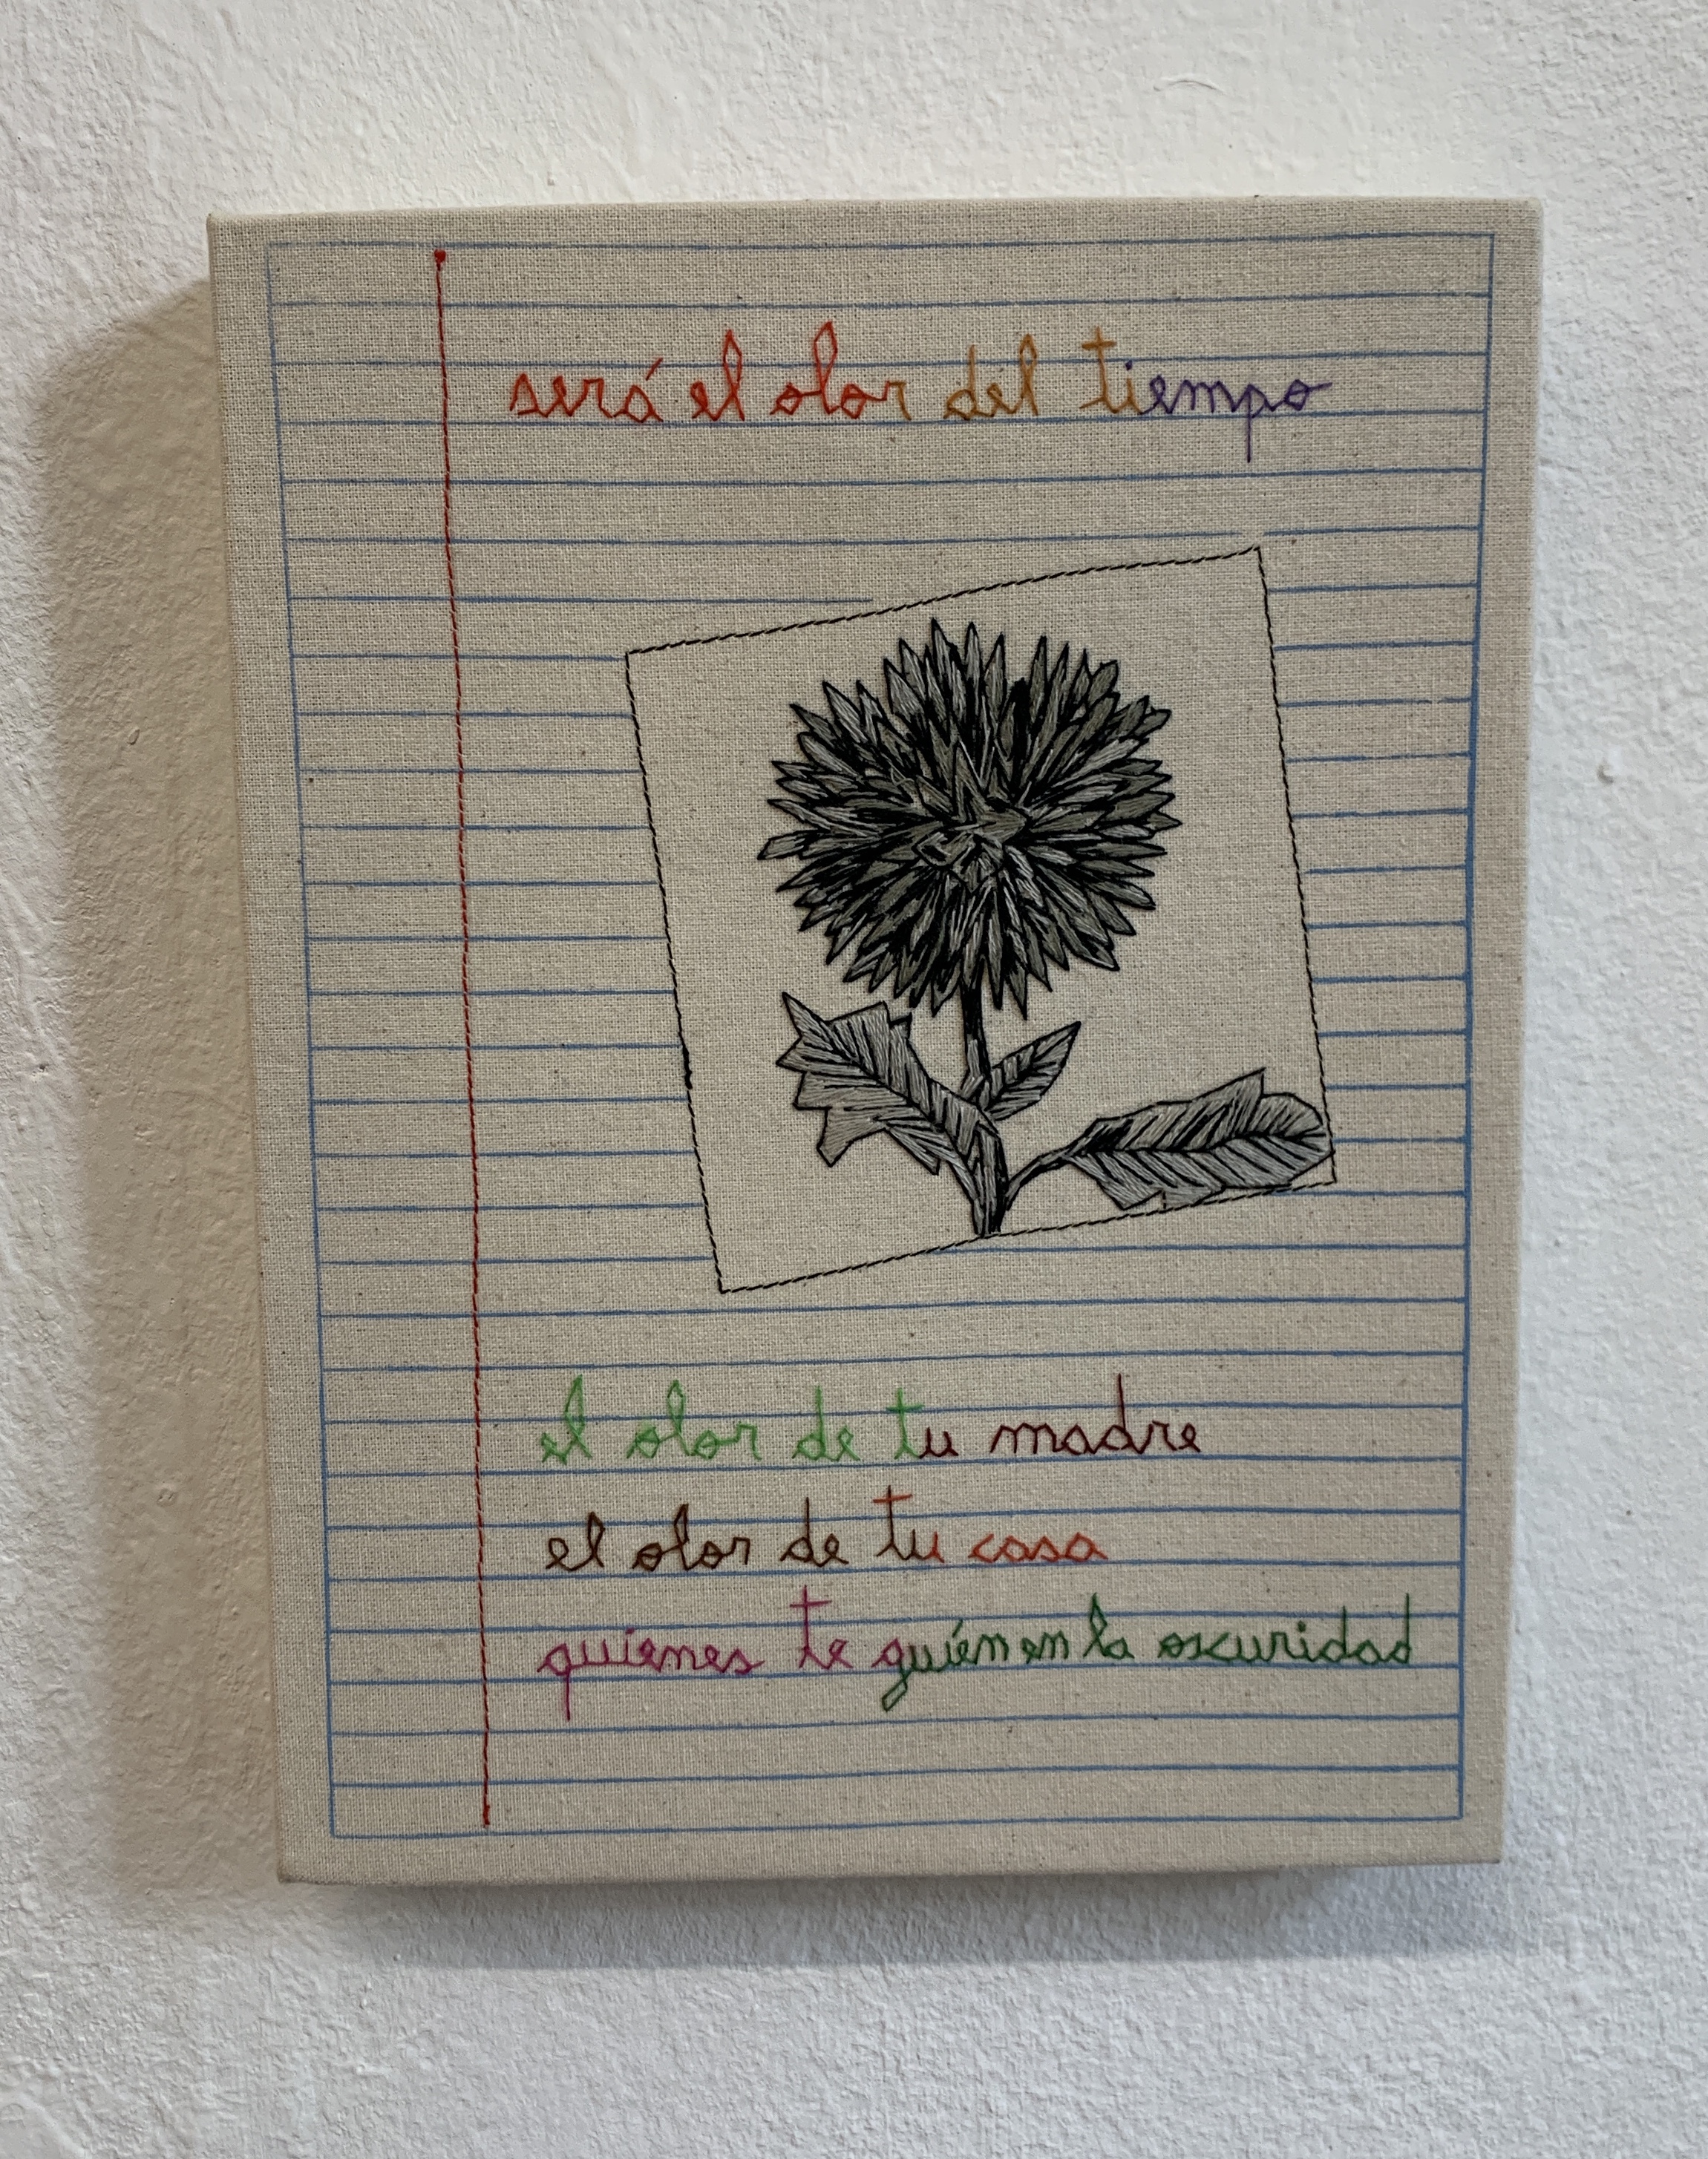 será el olor del tiempo
el olor de tu madre
el olor de tu casa
quienes te guíen en la oscuridad